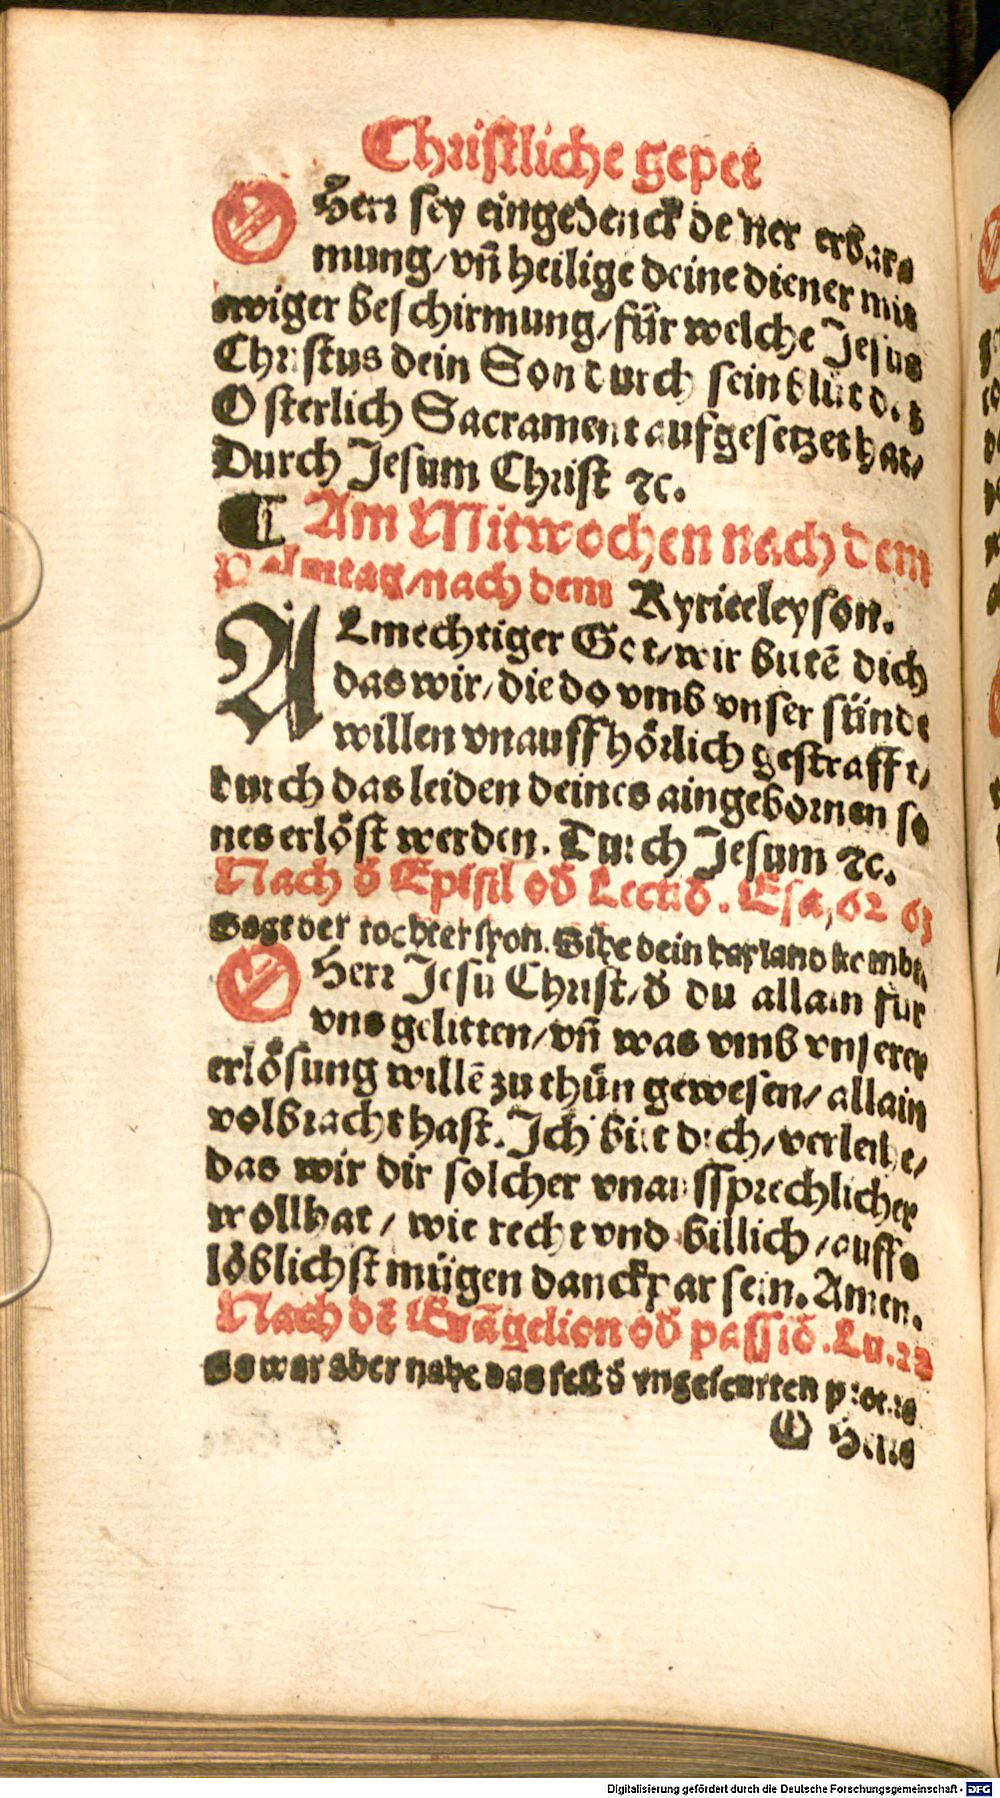 Christliche gepet
O Herr sey eingedenck deiner erbarm
mung/ vñ heilige deine diener mit
ewiger beschirmung/ für welche Jesus
Christus dein Son durch sein blůt das
Osterlich Sacrament aufgesetzet hat/
Durch Jesum Christ ⁊c.
¶ Am Mitwochen nach dem
Palmtag/ nach dem Kyrieeleyson.
ALmechtiger Got/ wir bittē dich
das wir/ die do vmb vnser sünde
willen vnauffhörlich gestrafft/
durch das leiden deines aingebornen so
nes erlöst werden. Durch Jesum ⁊c.
Nach d' Epistl od' Lectiō. Esa, 62 63
Sagt der tochter syon. Sihe dein hayland
O Herr Jesu Christ/ d' du allain für
vns gelitten/ vñ was vmb vnserer
erlösung willē zu thůn gewesen/ allain
volbracht hast. Ich bitt dich/ verleihe/
das wir dir solcher vnaussprechlicher
wolthat/ wie recht vnd billich/ auffs
löblichst mügen danckpar sein. Amen.
Nach dē Evāgelion od' passiō. Lu. 22
Es war aber nahe das fest d' vngeseurten
O